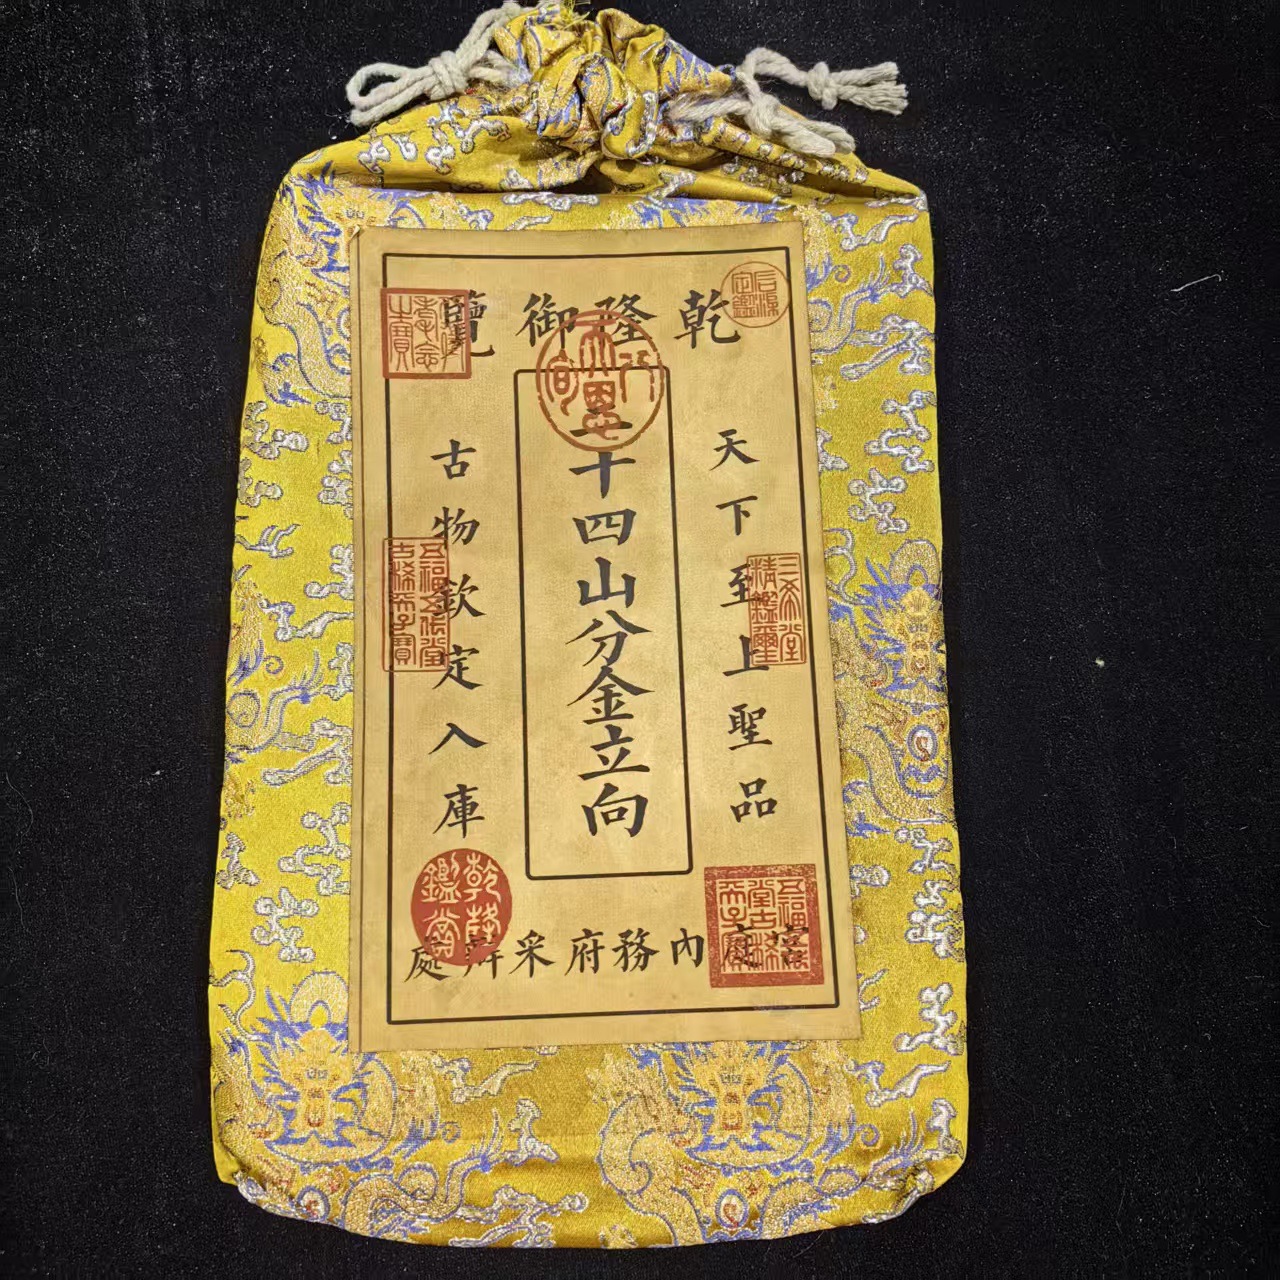 乾隆御覽
天下至上聖品
二十四山分金立向
古物欽定入庫
宮廷內務府采辦處
三希堂精鑑璽
五福五代堂古稀天子寶
八徵耄念之寶
乾隆鑑賞
五福五代堂古稀天子寶